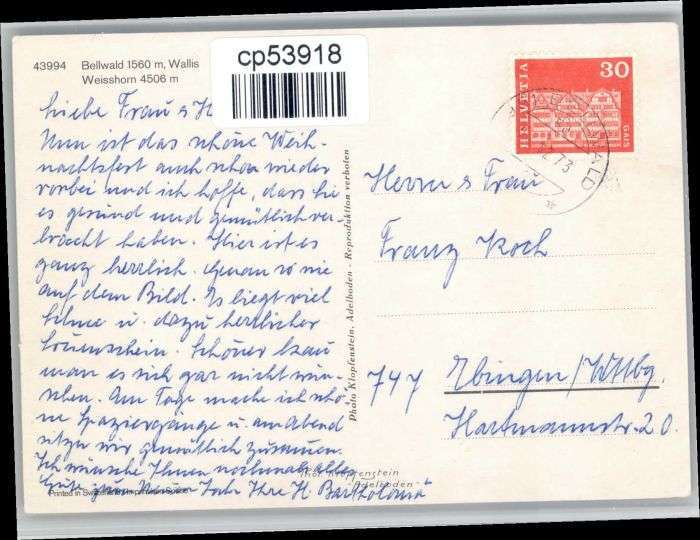 43994 Bellwald 1560 m, Wallis
Weisshorn 4506 m
cp53918
Liebe Frau & H
Nun ist das schöne Weih-
nachtsfest auch schon wieder
vorbei und ich hoffe, dass Sie
es gesund und gemütlich ver-
bracht haben. Hier ist es
ganz herrlich. Genau so wie
auf dem Bild. Es liegt viel
Schnee u. dazu herrlicher
Sonnenschein. Schöner kann
man es sich gar nicht wün-
schen. Am Tage mache ich schö-
ne Spaziergänge u. am Abend
sitzen wir gemütlich zusammen.
Ich wünsche Ihnen nochmals alles
Gute zum Neuen Jahr Ihre H. Bartholomä
Printed in Switzerland
Photo Klopfenstein, Adelboden - Reproduktion verboten
HELVETIA
30
GAIS
73
Herrn & Frau
Franz Koch
747 Ebingen/Wttbg.
Hartmannstr. 20.
Klopfenstein
-Adelboden-